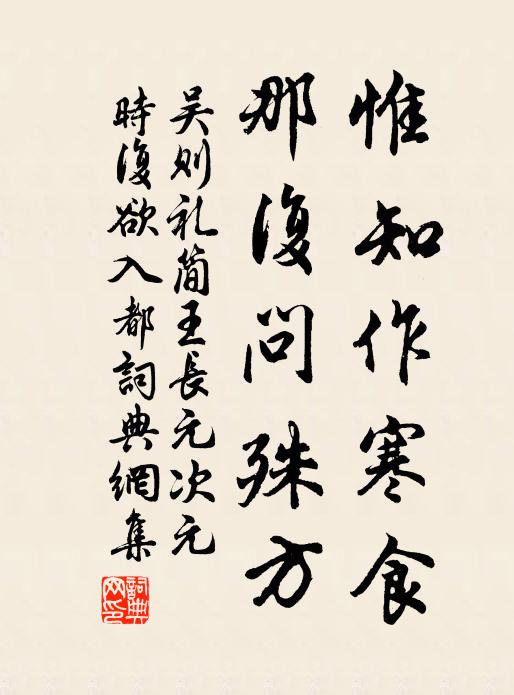 惟知作寒食
那復问殊方
吴则礼简王长元次元
時復欲入都詞典網集
詞典网印